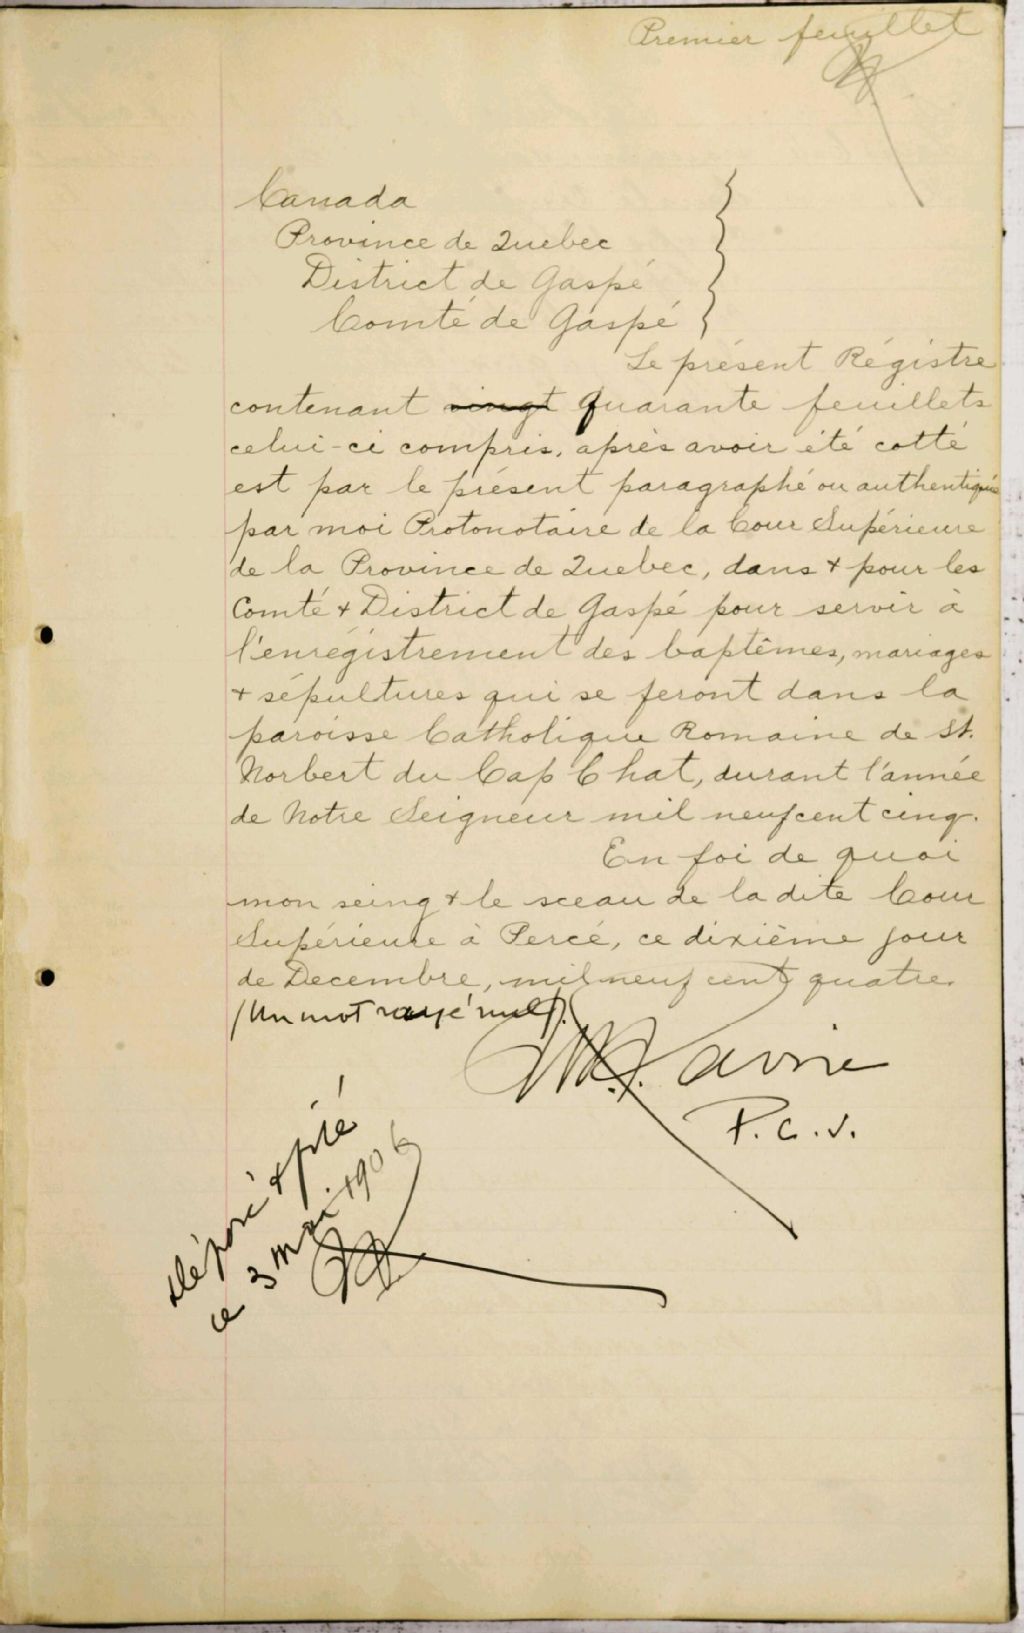 Premier feuillet
Canada
Province de Quebec
District de Gaspé
Comté de Gaspé
Le présent Régistre
contenant vingt quarante feuillets
celui-ci compris, après avoir été cotté
est par le présent paragraphé ou authentiqué
par moi Protonotaire de la Cour Supérieure
de la Province de Quebec, dans + pour les
Comté + District de Gaspé pour servir à
l'enrégistrement des baptêmes, mariages
+ sépultures qui se feront dans la
paroisse Catholique Romaine de St.
Norbert du Cap Chat, durant l'année
de Notre Seigneur mil neuf cent cinq.
En foi de quoi
mon seing + le sceau de la dite Cour
Supérieure à Percé, ce dixième jour
de Decembre, mil neuf cent quatre.
(Un mot rayé nul).
Lavoie
P.C.S.
Déposé + filé
ce 3 mai 1906